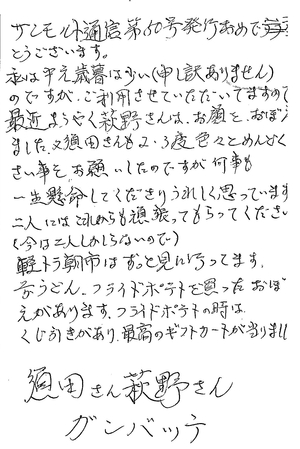 サンモルト通信第50号発行おめで
とうございます。
私は平えん歳暮は少い(申し訳ありません)
のですが、ご利用させていただいてますので
最近ようやく萩野さんは、お顔と、おぼえ
ました。又須田さんも2・3度色々とめんどく
さい事を、お願いしたのですが何事も
一生懸命してくださりうれしく思っています
二人にはこれからも頑張ってもらってください
(今は二人しかしらないので)
軽トラ朝市はずっと見に行ってます。
うどん、フライドポテトを買ったおぼ
えがあります。フライドポテトの時は
くじ引きがあり、最高のギフトカードが当りました!!
須田さん萩野さん
ガンバッテ